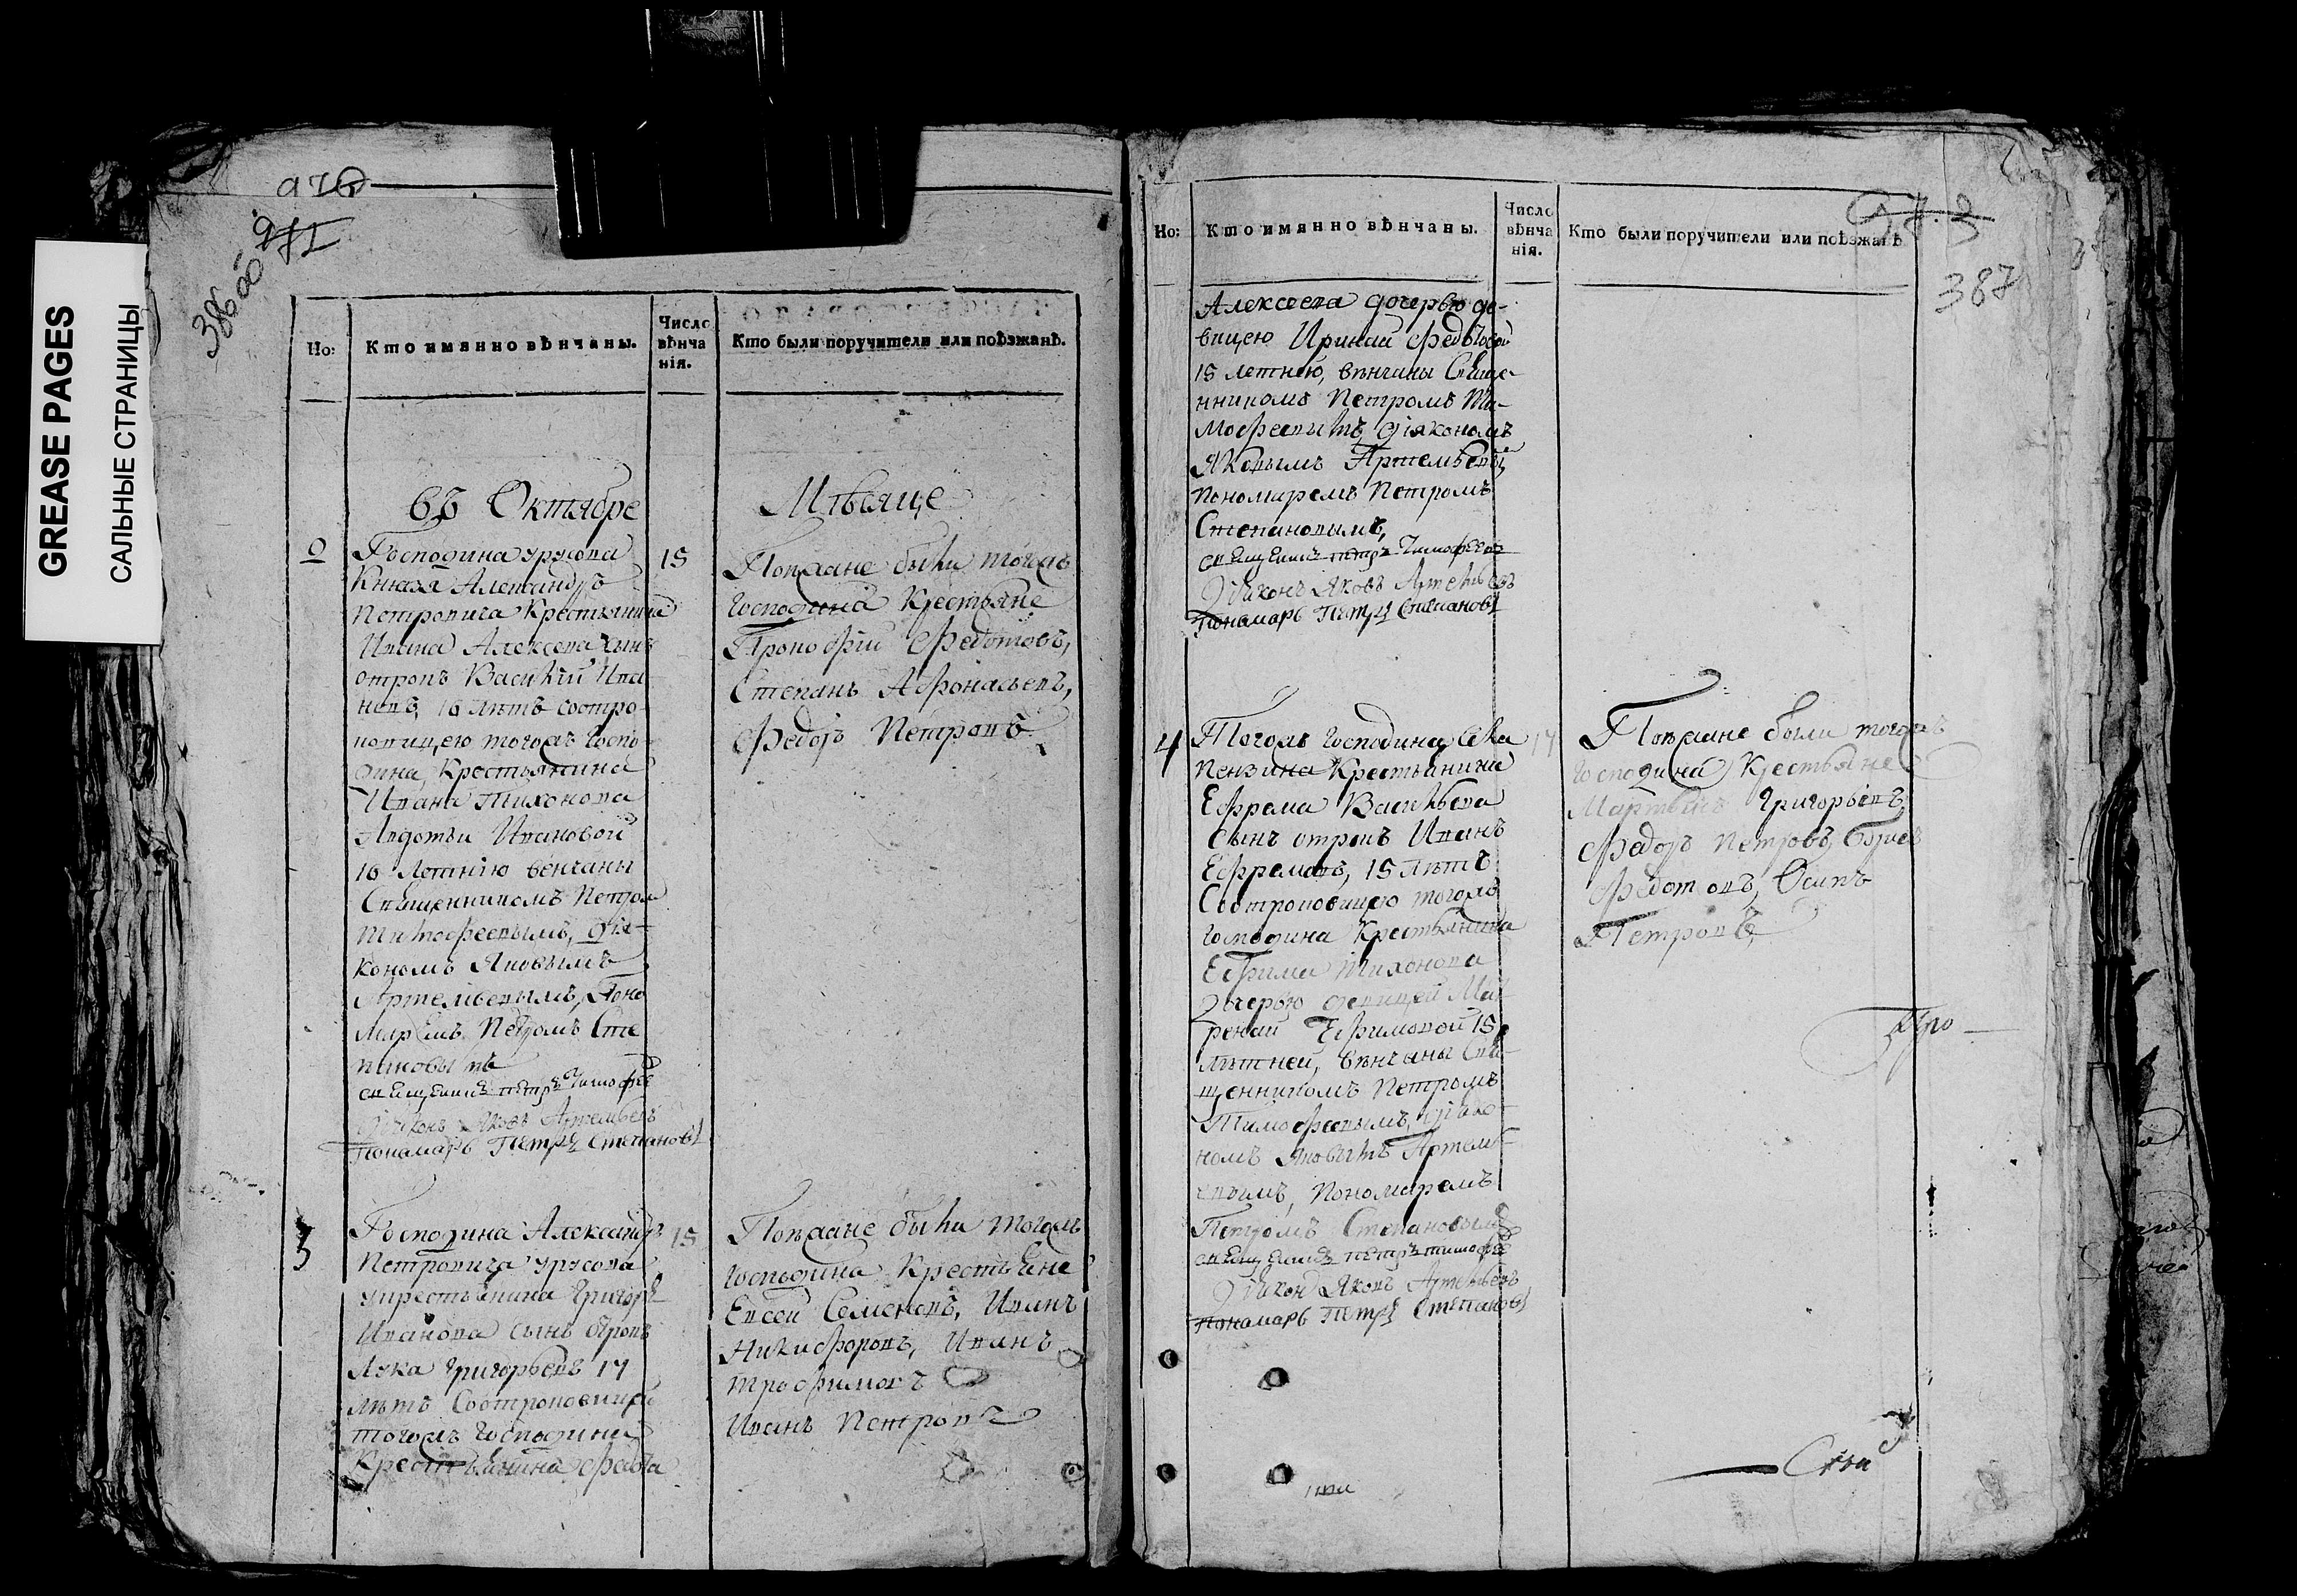 GREASE PAGES
САЛЬНЫЕ СТРАНИЦЫ
976
386 об
Но:
Кто имянно вѣнчаны.
Число вѣнча нія.
Кто были поручители или поѣзжанѣ.
въ Октябре
Мѣсяце
Господина урусова
15
Князя Александръ
Петровича Крестьянина
Ивана Алексева сынъ
отрокъ Василий Ива
новъ, 16 лѣтъ соотро
ковицею тогожъ Госпо
дина Крестьянина
Ивана Тихонова
Авдотьи Ивановой
16 Летнію венчаны
Священникомъ Петром
Тимофеевымъ, дія
кономъ Яковымъ
Артемьевымъ, Поно
маремъ Петромъ Сте
пановымъ
священникъ петръ Тимофее
Диякон Яковъ Артемьевъ
Пономарь Петръ Степановъ
Поезжане были тогожъ
господина Крестьяне
Прокофий Федотовъ,
Степанъ Афонасьевъ,
Федоръ Петровъ
3
Господина Александръ
15
Петровича урусова
крестьянина Григорь
Иванова сынъ отрокъ
Лука Григорьевъ 17
лѣтъ Соотроковицей
тогожъ Господина
Крестьянина Федота
Поезжане были тогожъ
господина Крестьяне
Евсей Семеновъ, Иванъ
Никифоровъ, Иванъ
трофимовъ
Иванъ Петровъ
Но:
Кто имянно вѣнчаны.
Число вѣнча нія.
Кто были поручители или поѣзжанѣ
387
Алексеева дочерью де-
вицею Ириной Федотовой
15 летнею, вѣнчаны Свяще
нникомъ Петромъ Ти-
мофеевимъ діякономъ
Яковымъ Артемьевы
пономаремъ Петромъ
Степановымъ,
священникъ петръ Тимофеевъ
Диякон Яковъ Артемьевъ
Пономарь Петръ Степановъ
4
Тогожъ Господина
Крестьянина
Ефрема Васильева
Сынъ отрокъ Иванъ
Ефремовъ, 15 лѣтъ
Соотроковицею тогожъ
господина Крестьянина
Ефима Тихонова
дочерью девицей Мат
реной Ефимовой 15
лѣтней, вѣнчаны Свя-
щенникомъ Петромъ
Тимофеевымъ, дияко
номъ Яковымъ Артемь
евымъ, Пономаремъ
Петромъ Степановымъ
священникъ петръ тимофее
Диякон Яковъ Артемьевъ
Пономарь Петръ Степановъ
Поезжане были тогожъ
господина Крестьяне
Мартынъ Григорьевъ,
Федоръ Петровъ, Борисъ
Федотовъ, Осипъ
Петровъ